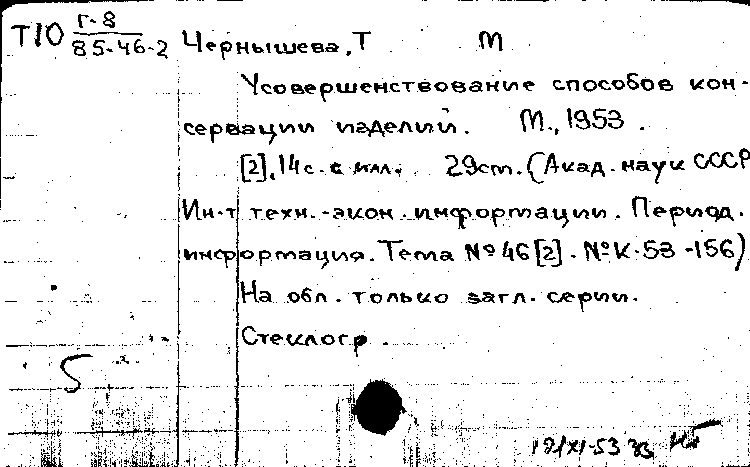 Т10 Г-8
85-46-2 Чернышева, Т М
Усовершенствование способов кон-
сервации изделий. М., 1953.
[2], 14с. с илл. 29см. (Акад. наук СССР
Ин-т техн.-экон. информации. Период.
информация. Тема № 46 [2]. № К-53-156)
На обл. только загл. серии.
Стеклогр.
5
19/XI-53